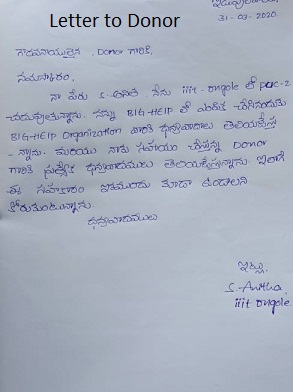 Letter to Donor
ఇడుపులపాయ,
31-03-2020.
గౌరవనీయులైన Donor గారికి,
నమస్కారం.
నా పేరు S.అనిత నేను iiit-ongole లో puc-2
చదువుతున్నాను. నన్ను BIG-HELP లో ఎంపిక చేసినందుకు
BIG-HELP Organization వారికి ధన్యవాదాలు తెలియచేస్తు
-న్నాను. మరియు నాకు సహాయం చేస్తున్న Donor
గారికి ప్రత్యేక ధన్యవాదములు తెలియచేస్తున్నాను. ఇలాగే
ఈ సహకారం ఇకముందు కూడా ఉండాలని
కోరుకుంటున్నాను.
ధన్యవాదములు
ఇట్లు,
S.Anitha,
iiit ongole